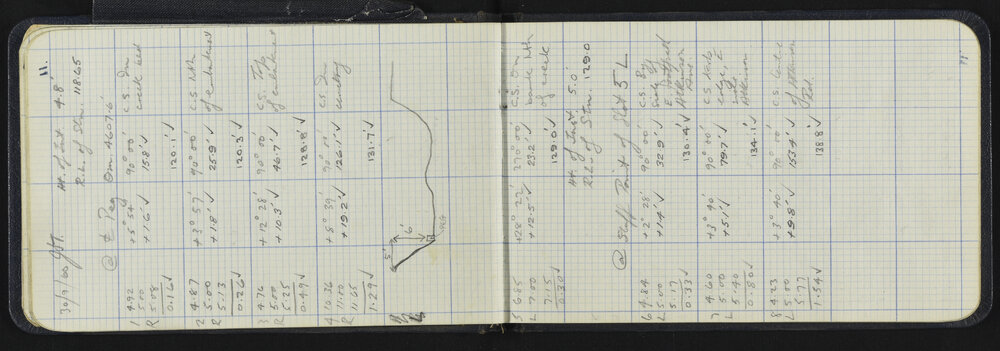 11.
30/3/60
Ht. of Inst 4.8'
R.L. of Stn. 118.65
@ ⅊ Peg 0m 4607.6'
1 4.92 +5° 54' 90° 00' C.S. In
5.00 +1.6' √ 15.8' √ creek bed
R 5.08
0.16 √ 120.1' √
2 4.87 +3° 57' 90° 00' C.S. Nth
5.00 +1.8' √ 25.9' √ of embankment
R 5.13
0.26 √ 120.3' √
3 4.76 +12° 28' 90° 00' C.S. Top
5.00 +10.3' √ 46.7' √ of embankment
R 5.25
0.49 √ 128.8' √
4 10.36 +8° 39' 90° 00' C.S. In
11.00 +19.2' √ 126.1' √
R 11.65
1.29 √ 131.7' √
5'
6'
PEG
5 6.85 +28° 22' 270° 00' C.S. On
L 7.00 +12.5' √ 23.2' √ bank Nth
7.15 of creek
0.30 √ 129.0' √
Ht. of Inst. 5.0'
R.L. of Stn. 129.0
@ Staff Point of Shot 5 L
6 4.84 +2° 28' 90° 00' C.S.
L 5.00 +1.4' √ 32.9' √
5.17
0.33 √ 130.4' √
7 4.60 +3° 40' 90° 00' C.S.
5.00 +5.1' √ 79.7' √ edge, E
L 5.40 side
0.80 √ 134.1' √ Atkinson
Rd
8 4.23 +3° 40' 90° 00' C.S.
L 5.00 +9.8' √ 153.4' √ of Atkinson
5.77 Rd.
1.54 √ 138.8' √